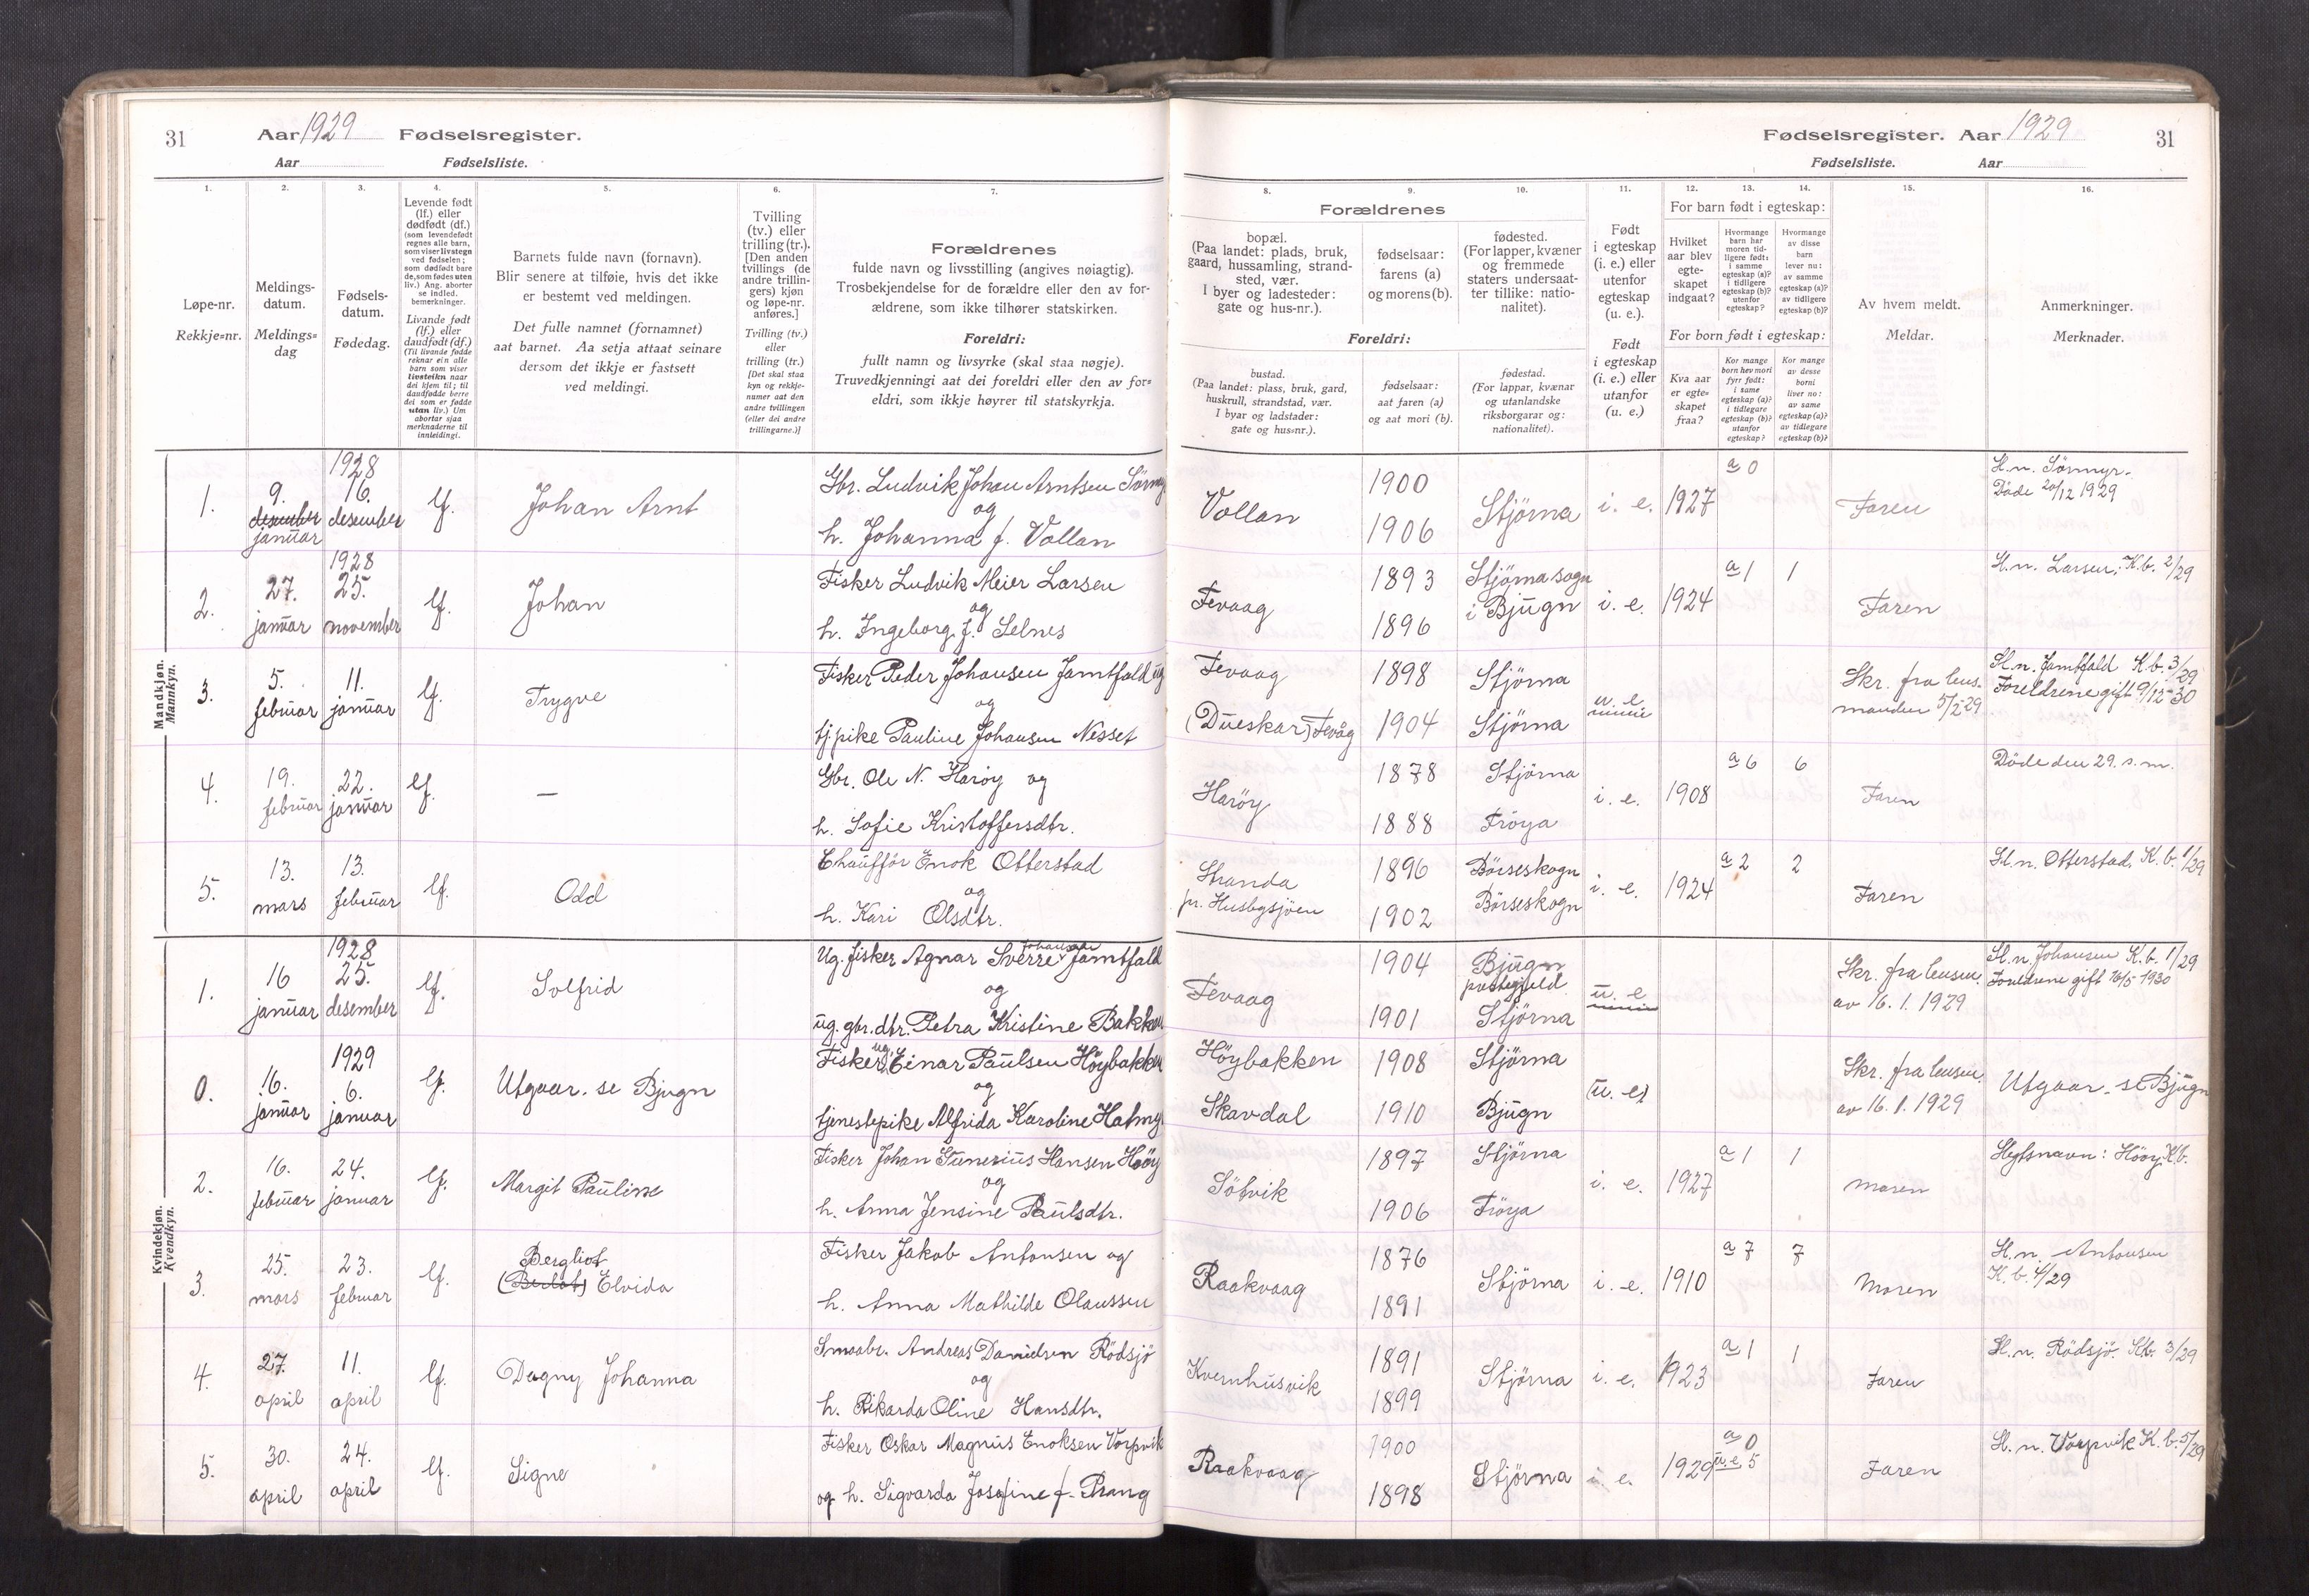 31 Aar 1929 Fødselsregister.
Aar Fødselsliste.
Fødselsregister. Aar 1929 31
Fødselsliste. Aar
1. 2. 3. 4. 5. 6. 7. 8. 9. 10. 11. 12. 13. 14. 15. 16.
Løpe-nr.
Rekkje=nr.
Meldings-
datum.
Meldings=
dag
Fødsels-
datum.
Fødedag.
Levende født
(lf.) eller
dødfødt (df.)
(som levendefødt
regnes alle barn,
som viser livstegn
ved fødselen;
som dødfødt bare
de, som fødes uten
liv.) Ang. aborter
se indled.
bemerkninger.
Livande født
(lf.) eller
daudfødt (df.)
(Til livande fødde
reknar ein alle
barn som viser
livsteikn naar
dei kjem til; til
daudfødde berre
dei som er fødde
utan liv.) Um
abortar sjaa
merknaderne til
innleidingi.
Barnets fulde navn (fornavn).
Blir senere at tilføie, hvis det ikke
er bestemt ved meldingen.
Det fulle namnet (fornamnet)
aat barnet. Aa setja attaat seinare
dersom det ikkje er fastsett
ved meldingi.
Tvilling
(tv.) eller
trilling (tr.).
[Den anden
tvillings (de
andre trillin-
gers) kjøn
og løpe-nr.
anføres.]
Tvilling (tv.)
eller
trilling (tr.)
[Det skal staa
kyn og rekkje-
numer aat den
andre tvillingen
(eller dei andre
trillingarne.)]
Forældrenes
fulde navn og livsstilling (angives nøiagtig).
Trosbekjendelse for de forældre eller den av for-
ældrene, som ikke tilhører statskirken.
Foreldri:
fullt namn og livsyrke (skal staa nøgje).
Truvedkjenningi aat dei foreldri eller den av for=
eldri, som ikkje høyrer til statskyrkja.
Forældrenes
bopæl.
(Paa landet: plads, bruk,
gaard, hussamling, strand-
sted, vær.
I byer og ladesteder:
gate og hus-nr.).
fødselsaar:
farens (a)
og morens (b).
fødested.
(For lapper, kvæner
og fremmede
staters undersaat-
ter tillike: natio-
nalitet).
Foreldri:
bustad.
(Paa landet: plass, bruk, gard,
huskrull, strandstad, vær.
I byar og ladstader:
gate og hus=nr.).
fødselsaar:
aat faren (a)
og aat mori (b).
fødestad.
(For lappar, kvænar
og utanlandske
riksborgarar og:
nationalitet).
Født
i egteskap
(i. e.) eller
utenfor
egteskap
(u. e.).
Født
i egteskap
(i. e.) eller
utanfor
(u. e.)
For barn født i egteskap:
Hvilket
aar blev
egte-
skapet
indgaat?
Hvormange
barn har
moren tid-
ligere født:
i samme
egteskap (a)?
i tidligere
egteskap (b)?
utenfor
egteskap?
Hvormange
av disse
barn
lever nu:
av samme
egteskap (a)?
av tidligere
egteskap (b)?
For born født i egteskap:
Kva aar
er egte=
skapet
fraa?
Kor mange
born hev mori
fyrr født:
i same
egteskap (a)?
i tidlegare
egteskap (b)?
utanfor
egteskap?
Kor mange
av desse
borni
liver no:
av same
egteskap (a)?
av tidlegare
egteskap (b)?
Av hvem meldt.
Meldar.
Anmerkninger.
Merknader.
Mandkjøn.
Mannkyn.
1. 9. desember januar 1928 16. desember lf. Johan Arnt
Gbr. Ludvik Johan Arntsen
og
h. Johanna f. Vollan
Vollan 1900 1906 Stjörna i. e. 1927 a 0 Faren
Sl. n. Sörmyr.
Döde 20/12 1929
2. 27. januar 1928 25. november lf. Johan
Fisker Ludvik Meier Larsen
og
h. Ingeborg f. Selnes
Fevaag 1893 1896 Stjörna sogn i Bjugn i. e. 1924 a 1 1 Faren
Sl. n. Larsen; K.b. 2/29
3. 5. februar 11. januar lf. Trygve
Fisker Peder Johansen Jamtfald ug
og
tj.pike Pauline Johansen Nesset
Fevaag (Dueskar) Fevåg 1898 1904 Stjörna Stjörna u. e.
Skr. fra lens-
manden 5/2 29
Sl. n. Jamtfald K.b. 3/29
Foreldrene gift 9/12-30
4. 19. februar 22. januar lf. —
Gbr. Ole N. Haröy og
h. Sofie Kristoffersdtr.
Haröy 1878 1888 Stjörna Fröya i. e. 1908 a 6 6 Faren
Döde den 29. s. m.
5. 13. mars 13. februar lf. Odd
Chaufför Enok Otterstad
og
h. Kari Olsdtr.
Stranda
pr. Husbysjöen
1896 1902 Börseskogn Börseskogn i. e. 1924 a 2 2 Faren
Sl. n. Otterstad, K.b. 1/29
Kvindekjøn.
Kvendkyn.
1. 16 januar 1928 25. desember lf. Solfrid
Ug. fisker Agnar Sverre Johansen Jamtfald
og
ug. gbr.dtr. Petra Kristine Bakken
Fevaag 1904 1901 Bjugn prestegjeld Stjörna u. e.
Skr. fra lensm.
av 16. 1. 1929
Sl. n. Johansen K.b. 1/29
Foreldrene gift 16/5 1930
0. 16. januar 1929 6. januar lf. Utgaar. se Bjugn
Fisker ug. Einar Paulsen Höybakken
og
tjenestepike Alfrida Karoline
Höybakken Skavdal 1908 1910 Stjörna Bjugn (u. e)
Skr. fra lensm.
av 16. 1. 1929
Utgaar. se Bjugn
2. 16. februar 24. januar lf. Margit Pauline
Fisker Johan Hansen Hööy
og
h. Anna Jensine Paulsdtr.
Sötvik 1897 1906 Stjörna Fröya i. e. 1927 a 1 1 Moren
Slegtsnavn: Hööy. K.b.
3. 25. mars 23. februar lf. Bergliot Elvida
Fisker Jakob Antonsen og
h. Anna Mathilde Olaussen
Raakvaag 1876 1891 Stjörna i. e. 1910 a 7 7 Moren
Sl. n. Antonsen
K. b. 4/29
4. 27. april 11. april lf. Dagny Johanna
Smaabr. Andreas Danielsen Rödsjö
og
h. Rikarda Oline Hansdtr.
Kvernhusvik 1891 1899 Stjörna i. e. 1923 a 1 1 Faren
Sl. n. Rödsjö. Kb. 3/29
5. 30. april 24. april lf. Signe
Fisker Oskar Magnus Enoksen Vorpvik
og h. Sigvarda Josefine f. Prang
Raakvaag 1900 1898 Stjörna i. e. 1929 a 0 u.e. 5 Faren
Sl. n. Vorpvik K. b. 5/29